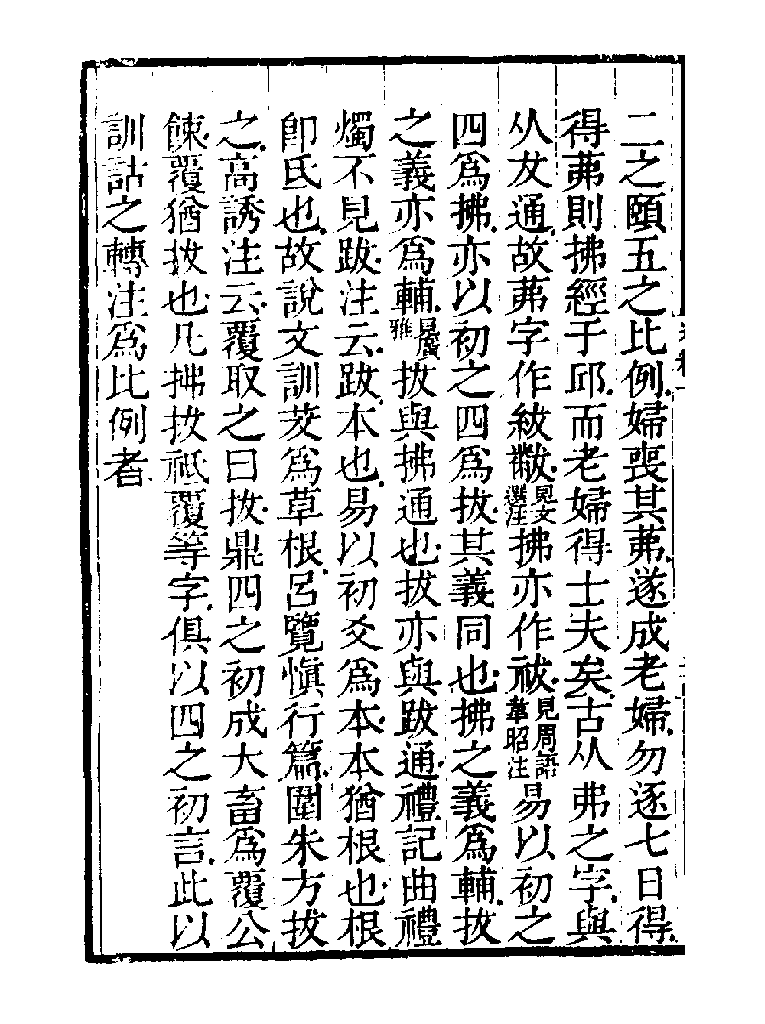 二之頤五之比例婦喪其茀遂成老婦勿逐七日得
得茀則拂經于邱而老婦得士夫矣古从弗之字與
从犮通故茀字作紱黻見文選注拂亦作祓見周語韋昭注易以初之
四爲拂亦以初之四爲拔其義同也拂之義爲輔拔
之義亦爲輔見廣雅拔與拂通也拔亦與跋通禮記曲禮
燭不見跋注云跋本也易以初爻爲本本猶根也根
卽氐也故說文訓茇爲草根呂覽愼行篇圍朱方拔
之高誘注云覆取之曰拔鼎四之初成大畜爲覆公
餗覆猶拔也凡拂拔祗覆等字俱以四之初言此以
訓詁之轉注爲比例者